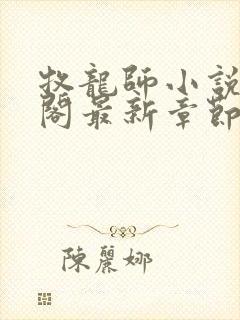 牧龍師小說
閣最新章節
陳麗娜